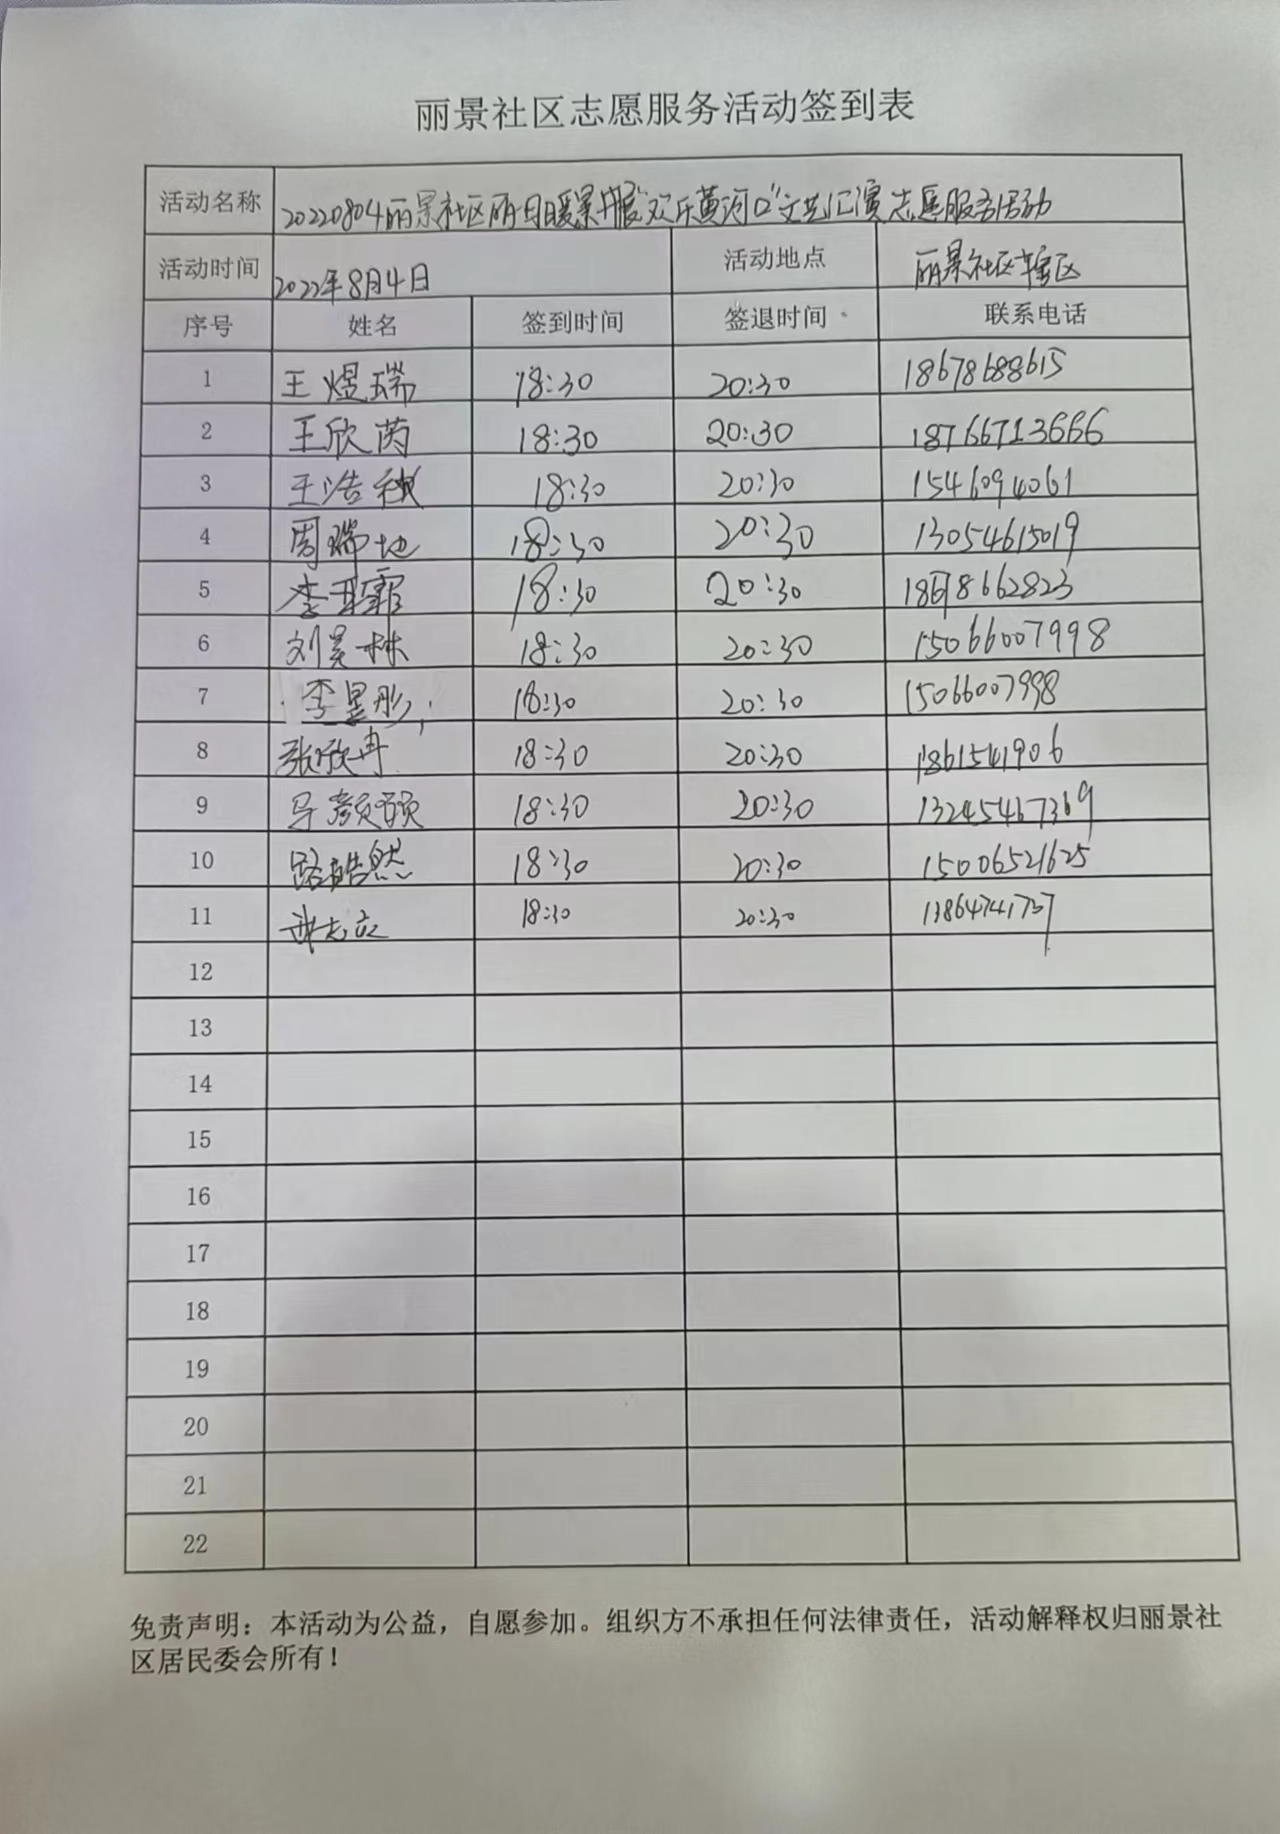 丽景社区志愿服务活动签到表
活动名称 20220804丽景社区丽日暖景开展"欢乐黄河口"文艺汇演志愿服务活动
活动时间 2022年8月4日 活动地点 丽景社区辖区
序号 姓名 签到时间 签退时间 联系电话
1 王煜瑞 18:30 20:30 18678688615
2 王欣芮 18:30 20:30 18766713666
3 王浩 18:30 20:30 1546094061
4 周瑞地 18:30 20:30 13054615019
5 李亚霏 18:30 20:30 18662823
6 刘昊林 18:30 20:30 15066007998
7 李昱彤 18:30 20:30 15066007998
8 张欣冉 18:30 20:30 1861541906
9 马颜硕 18:30 20:30 13245467369
10 路皓然 18:30 20:30 15006521625
11 18:30 20:30 13864741737
12
13
14
15
16
17
18
19
20
21
22
免责声明：本活动为公益，自愿参加。组织方不承担任何法律责任，活动解释权归丽景社
区居民委会所有！